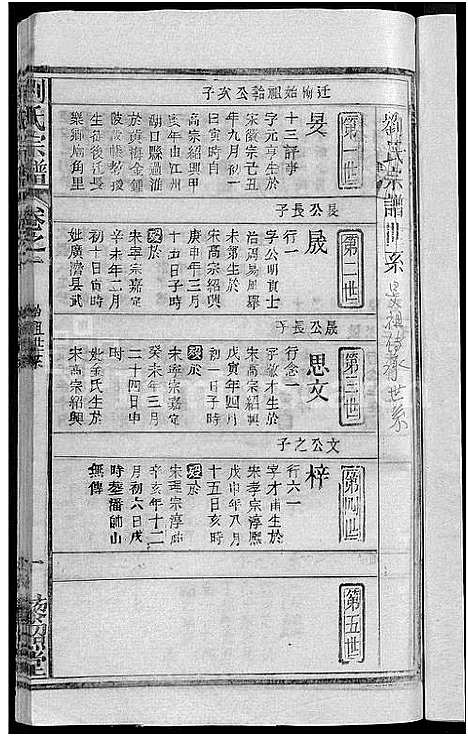 劉氏宗譜
世系
第一世
遷
始祖
公次子
旻
十三評事
字元亨生於
宋徽宗己丑
年九月初一
曰寅時自
高宗紹興甲
年由江州
湖口縣過湖
於黃梅金鐘
生徒後江長
樂鄉廟角里
第二世
旻公長子
晟
行一
字公明貢士
治周易鳳舉
未第生於
宋高宗紹興
庚申年三月
十五日子時
歿於
宋寧宗嘉定
辛未年二月
初十日寅時
妣廣濟縣武
第三世
晟公長子
思文
行念一
字敬才生於
宋高宗紹興
戊寅年四月
初一日子時
歿於
宋寧宗嘉定
癸未年三月
二十四日申
時
妣金氏生於
宋高宗紹興
第四世
文公之子
梓
行六一
字才甫生於
宋孝宗淳熙
戊申年八月
十五日亥時
歿於
宋理宗淳祐
辛亥年十二
月初六日戌
時葬潘師山
無傳
第五世
劉氏宗譜
卷之一
祖世系
一
堂